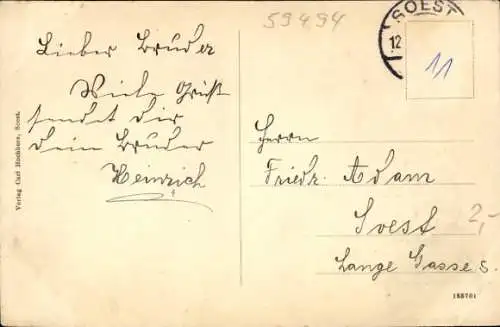 59494
SOEST
12
11
Lieber Bruder
Viele Grüße
sendet dir
dein Bruder
Heinrich
Herrn
Friedr. Adam
Soest
2,-
Lange Gasse 8.
Verlag Carl Hochhaus, Soest.
188701